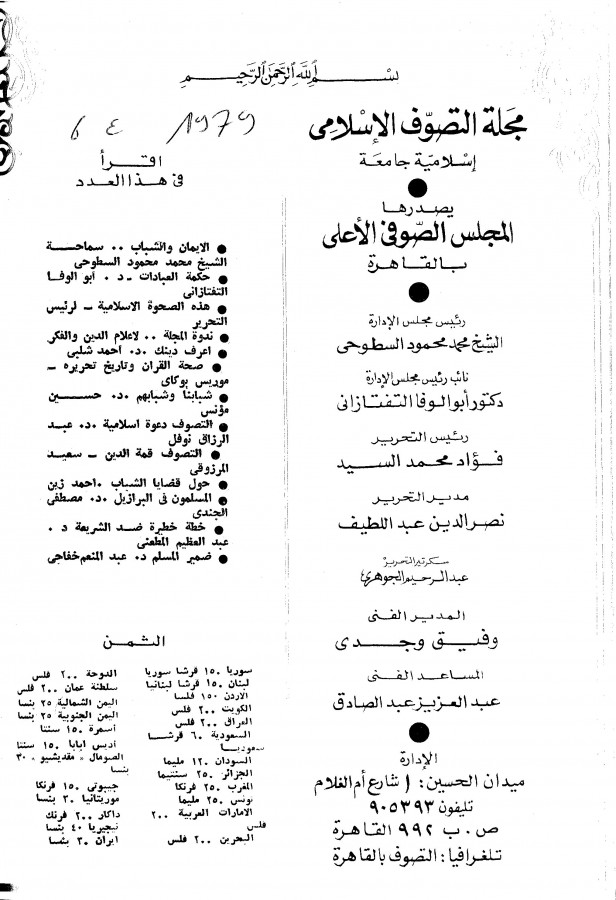 بسم الله الرحمن الرحيم
مجلة التصوف الإسلامى
إسلامية جامعة
يصدرها
المجلس الصوفى الأعلى
بالقاهرة
رئيس مجلس الإدارة
الشيخ محمد محمود السطوحى
نائب رئيس مجلس الإدارة
دكتور أبو الوفا التفتازانى
رئيس التحرير
فؤاد محمد السيد
مدير التحرير
نصر الدين عبد اللطيف
سكرتير التحرير
عبد الرحيم الجوهرى
المدير الفنى
وفيق وجدى
المساعد الفنى
عبد العزيز عبد الصادق
الإدارة
ميدان الحسين: ١ شارع أم الغلام
تليفون ٩٠٥٣٩٣
ص . ب ٩٩٢ القاهرة
تلغرافيا: التصوف بالقاهرة
١٩٧٩ ٤ ٦
اقرأ
فى هذا العدد
● الايمان والشباب .. سماحة
الشيخ محمد محمود السطوحى
● حكمة العبادات ـ د . أبو الوفا
التفتازانى
● هذه الصحوة الاسلامية ـ لرئيس
التحرير
● ندوة المجلة .. لاعلام الدين والفكر
● اعرف دينك .د. احمد شلبى
● صحة القران وتاريخ تحريره ـ
موريس بوكاى
● شبابنا وشبابهم .د. حسين
مؤنس
● التصوف دعوة اسلامية .د. عبد
الرزاق نوفل
● التصوف قمة الدين ـ سعيد
المرزوقى
● حول قضايا الشباب .احمد زين
● المسلمون فى البرازيل .د. مصطفى
الجندى
● خطة خطيرة ضد الشريعة د .
عبد العظيم المطعنى
● ضمير المسلم د. عبد المنعم خفاجى
الثمن
سوريا ١٥٠ قرشا سوريا
لبنان ١٥٠ قرشا لبنانيا
الاردن ١٥٠ فلسا
الكويت ٢٠٠ فلس
العراق ٢٠٠ فلس
السعودية ٦٠ قرشا
سعوديا
السودان ١٢٠ مليما
الجزائر ٢٥٠ سنتيما
المغرب ٢٥٠ فرنكا
تونس ٢٥٠ مليما
الامارات العربية ٢٠٠
فلس
البحرين ٢٠٠ فلس
الدوحة ٢٠٠ فلس
سلطنة عمان ٢٠٠ فلس
اليمن الشمالية ٢٥ بنسا
اليمن الجنوبية ٢٥ بنسا
أسمرة ١٥٠ سنتا
أديس ابابا ١٥٠ سنتا
الصومال « مقديشيو » ٣٠
بنسا
جيبوتى ١٥٠ فرنكا
موريتانيا ٣٠ بنسا
داكار ٢٠٠ فرنك
نيجيريا ٤٠ بنسا
ايران ٣٠ بنسا